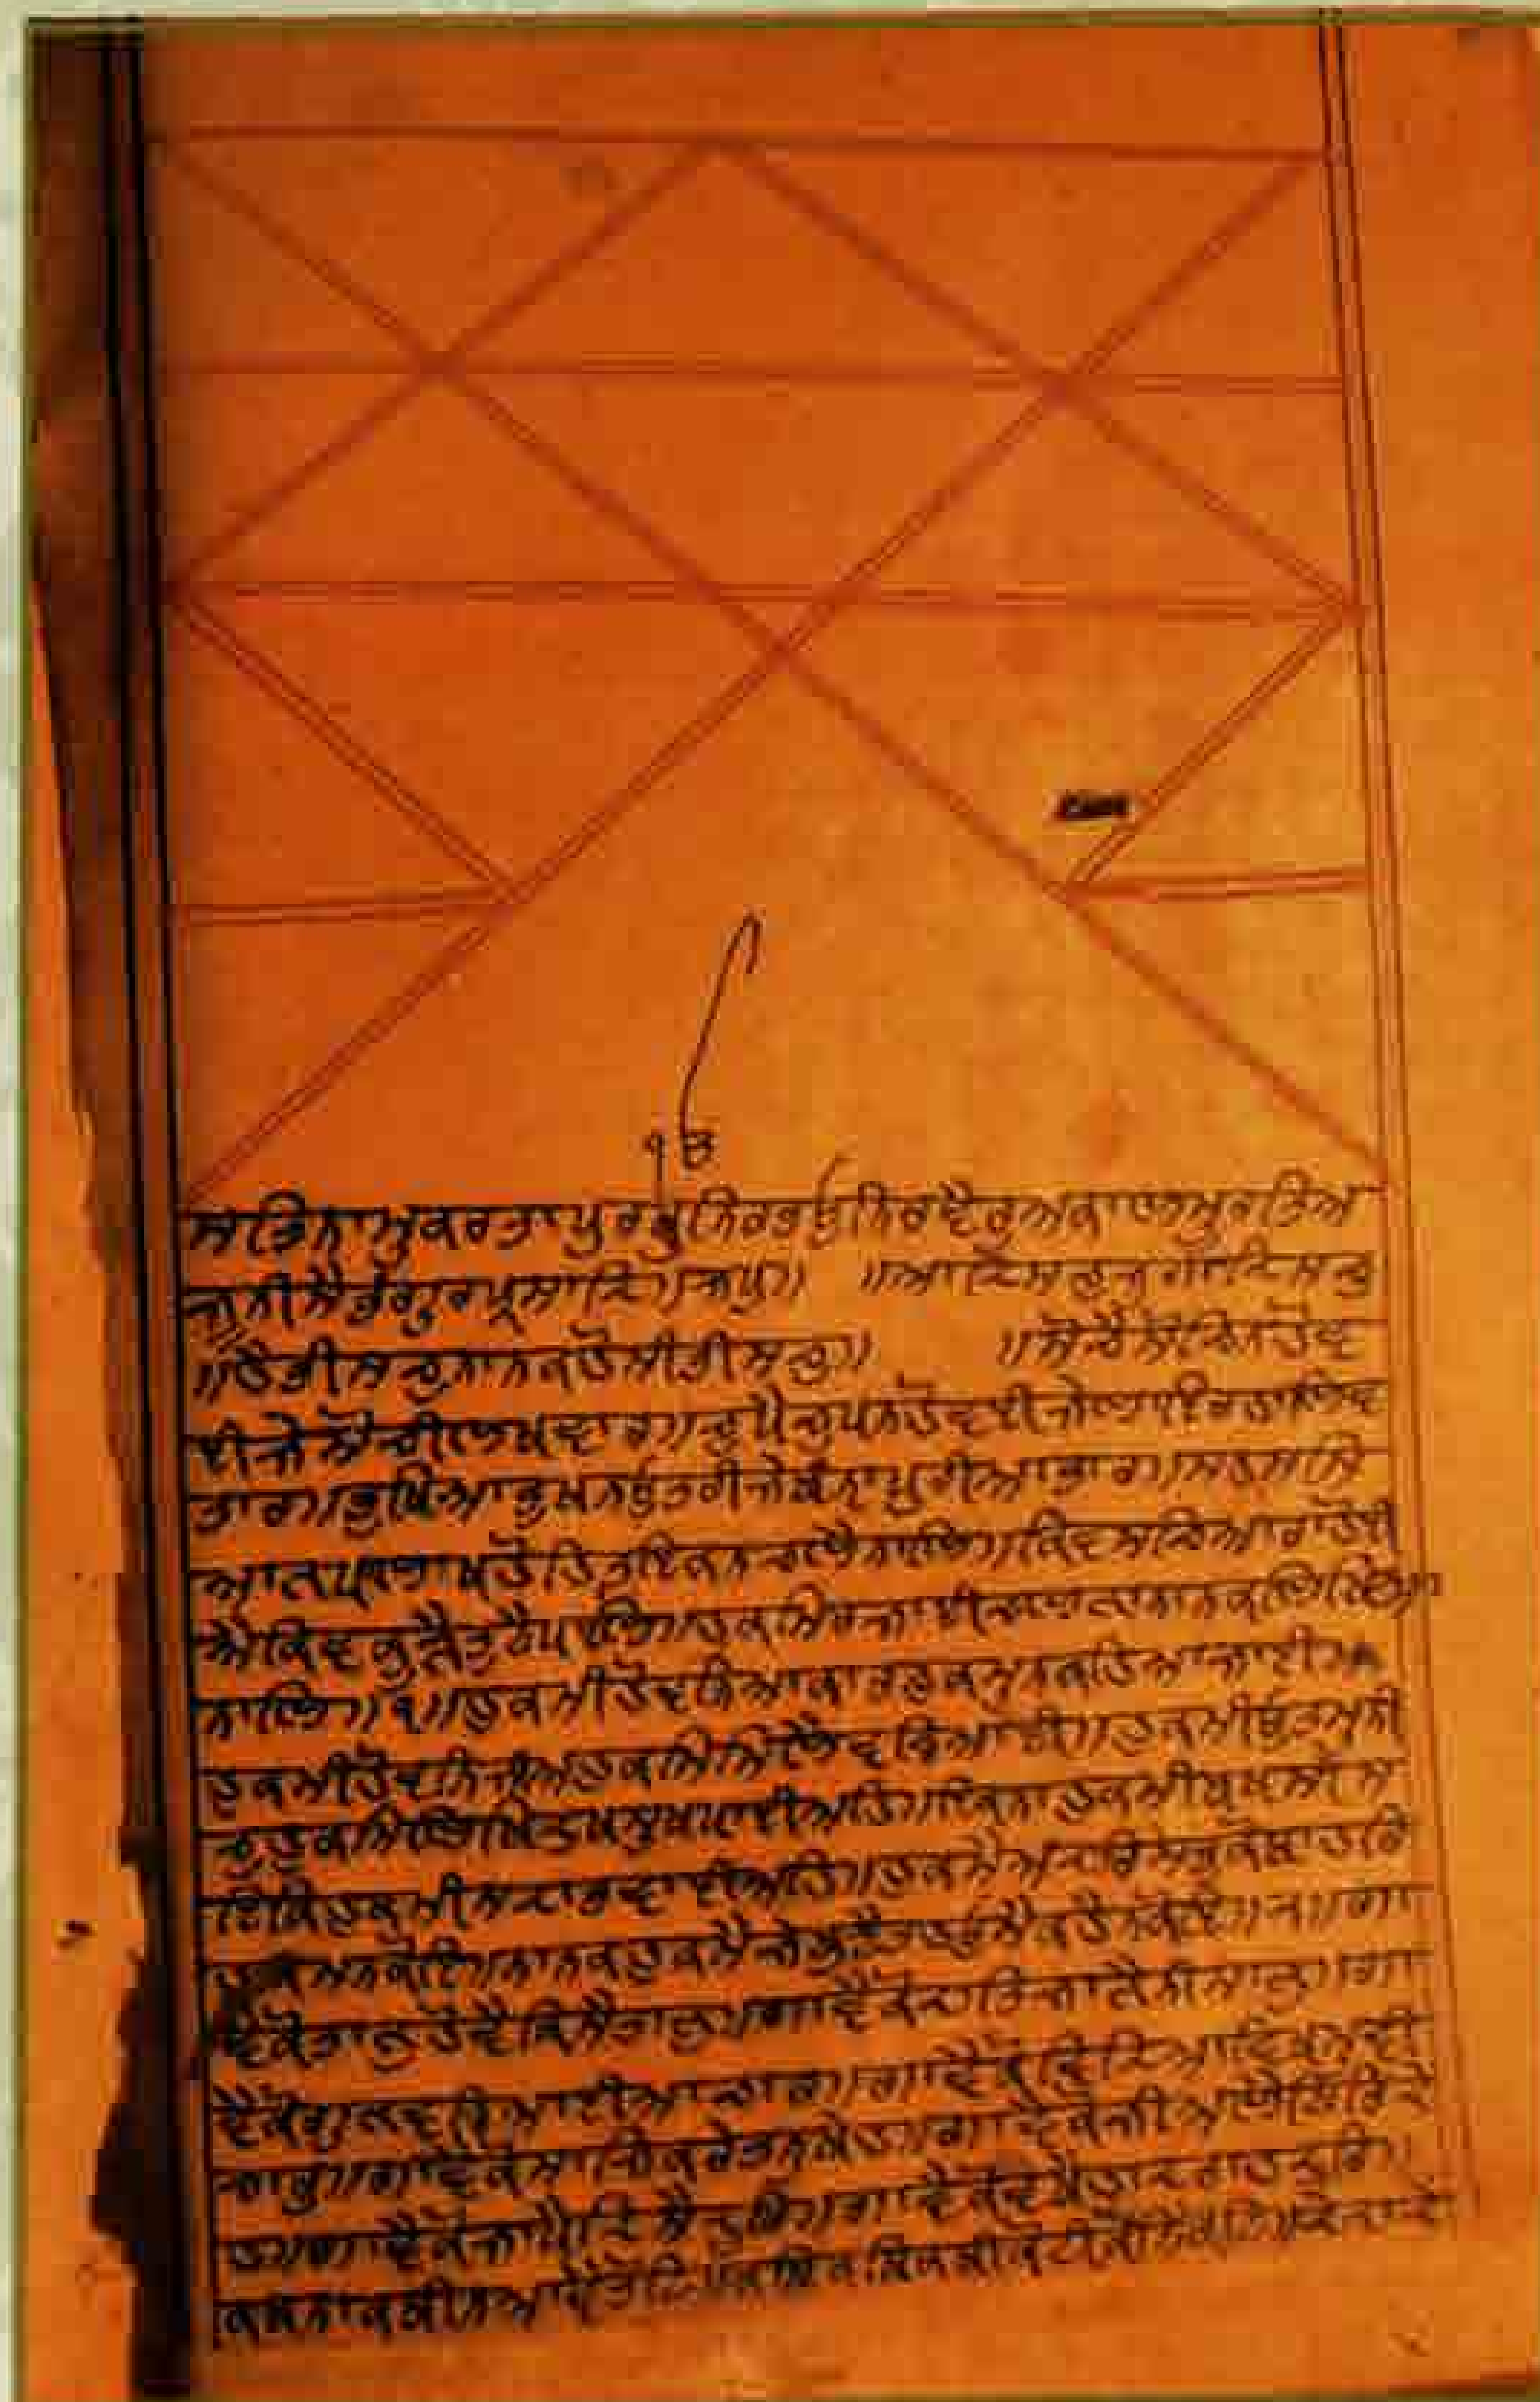 ੧ੳ
ਸਤਿਨਾਮੁਕਰਤਾਪੁਰਖੁਨਿਰਭਉਨਿਰਵੈਰੁਅਕਾਲਮੂਰਤਿਅ
ਜੂਨੀਸੈਭੰਗੁਰਪ੍ਰਸਾਦਿ॥ਜਪੁ॥ ॥ਆਦਿਸਚੁਜੁਗਾਦਿਸਚੁ
॥ਹੈਭੀਸਚੁਨਾਨਕਹੋਸੀਭੀਸਚੁ॥ ॥ਸੋਚੈਸੋਚਿਨਹੋਵ
ਈਜੇਸੋਚੀਲਖਵਾਰ॥ਚੁਪੈਚੁਪਨਹੋਵਈਜੇਲਾਇਰਹਾਲਿਵ
ਤਾਰ॥ਭੁਖਿਆਭੁਖਨਉਤਰੀਜੇਬੰਨਾਪੁਰੀਆਭਾਰ॥ਸਹਸਸਿ
ਆਣਪਲਾਖਹੋਹਿਤਇਕਨਚਲੈਨਾਲਿ॥ਕਿਵਸਚਿਆਰਾਹੋਈ
ਐਕਿਵਕੂੜੈਤੁਟੈਪਾਲਿ॥ਹੁਕਮਿਰਜਾਈਚਲਣਾਨਾਨਕਲਿਖਿਆ
ਨਾਲਿ॥੧॥ਹੁਕਮੀਹੋਵਨਿਆਕਾਰਹੁਕਮੁਨਕਹਿਆਜਾਈ॥
ਹੁਕਮੀਹੋਵਨਿਜੀਅਹੁਕਮਿਮਿਲੈਵਡਿਆਈ॥ਹੁਕਮੀਉਤਮੁਨੀ
ਚੁਹੁਕਮਿਲਿਖਿਦੁਖਸੁਖਪਾਈਅਹਿ॥ਇਕਨਾਹੁਕਮੀਬਖਸੀਸ
ਇਕਿਹੁਕਮੀਸਦਾਭਵਾਈਅਹਿ॥ਹੁਕਮੈਅੰਦਰਿਸਭੁਕੋਬਾਹਰਿ
ਹੁਕਮਨਕੋਇ॥ਨਾਨਕਹੁਕਮੈਜੇਬੁਝੈਤਹਉਮੈਕਹੈਨਕੋਇ॥੨॥ਗਾ
ਵੈਕੋਤਾਣੁਹੋਵੈਕਿਸੈਤਾਣੁ॥ਗਾਵੈਕੋਦਾਤਿਜਾਣੈਨੀਸਾਣੁ॥ਗਾ
ਵੈਕੋਗੁਣਵਡਿਆਈਆਚਾਰ॥ਗਾਵੈਕੋਵਿਦਿਆਵਿਖਮੁਵੀ
ਚਾਰੁ॥ਗਾਵੈਕੋਸਾਜਿਕਰੇਤਨੁਖੇਹ॥ਗਾਵੈਕੋਜੀਅਲੈਫਿਰਿਦੇ
ਹ॥ਗਾਵੈਕੋਜਾਪੈਦਿਸੈਦੂਰਿ॥ਗਾਵੈਕੋਵੇਖੈਹਾਦਰਾਹਦੂਰਿ॥
ਕਥਨਾਕਥੀਨਆਵੈਤੋਟਿ॥ਕਥਿਕਥਿਕਥੀਕੋਟੀਕੋਟਿਕੋਟਿ॥ਦੇਦਾਦੇ